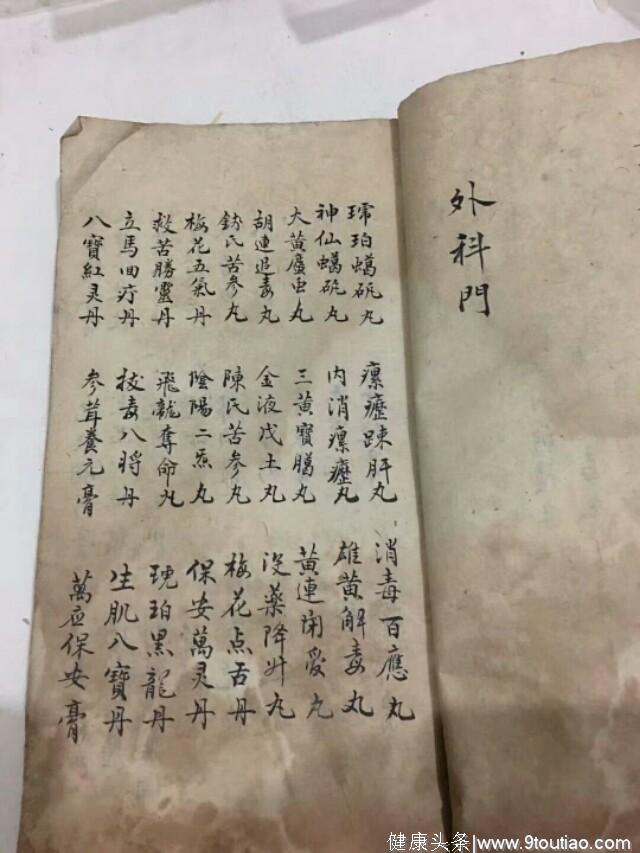 外科門
琥珀蠟矾丸
神仙蠟矾丸
大黃虫丸
胡連追毒丸
氏苦参丸
梅花五氣丹
救苦勝靈丹
立馬回疔丹
八寶紅灵丹
瘰癧踈肝丸
内消瘰癧丸
三黃寶臘丸
金液戊土丸
陳氏苦参丸
陰陽二炁丸
飛龍奪命丸
拔毒八將丹
参茸養元膏
消毒百應丸
雄黃解毒丸
黃連丸
没藥降丸
梅花点舌丹
保安萬灵丹
琥珀黑龍丹
生肌八寶丹
萬应保安膏
健康头条|www.9toutiao.com